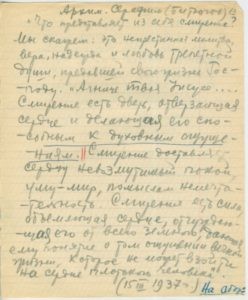 Архим. Серафим (Битюгов):
"Что представляет из себя смирение?
Мы скажем: это непрестанная молитва,
вера, надежда и любовь трепетной
души, предавшей свою жизнь Гос-
поду.
Смирение есть дверь, отверзающая
сердце и делающая его спо-
собным к духовным ощуще-
ниям. Смирение доставляет
сердцу невозмутимый покой,
уму - мир, помыслам немечта-
тельность. Смирение есть сила,
объемлющая сердце, отчуждаю-
щая его от всего земного, дающая
ему понятие о том ощущении вечной
жизни, которое не может взойти
на сердце плотского человека".
(15/III 1937 г.) На обор